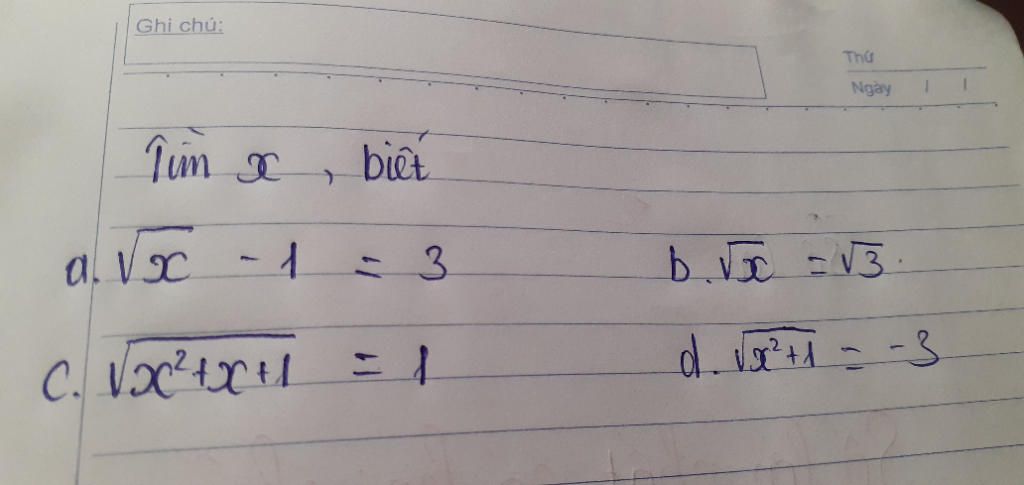 Ghi chú:
Thứ
Ngày / /
Tìm x , biết
a. √x - 1 = 3 b. √x = √3.
c. √(x²+x+1) = 1 d. √(x²+1) = -3